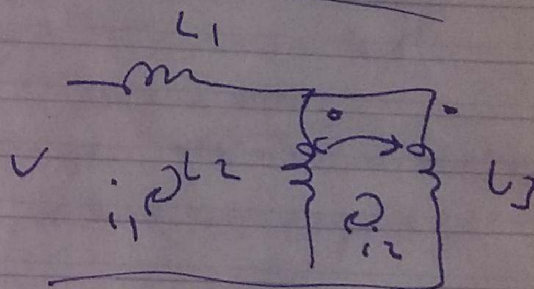 L1
V i1 L2 i2 L3